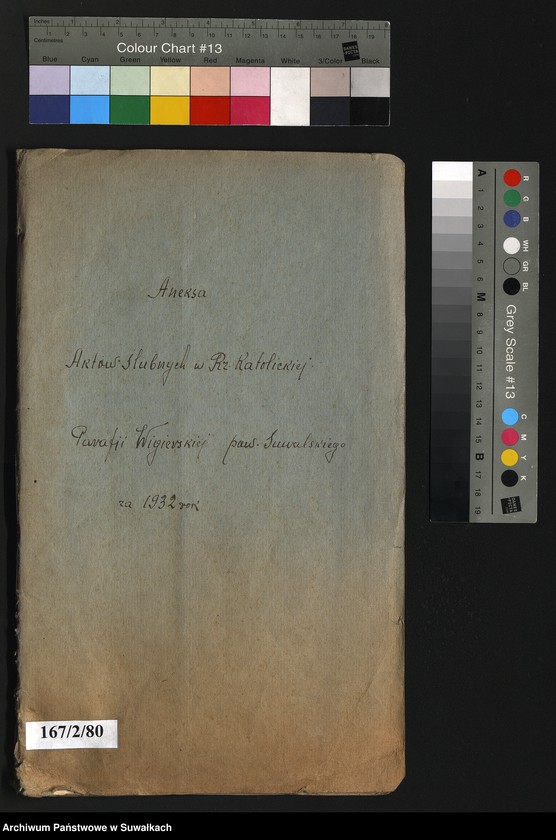 Inches 1 2 3 4 5 6 7 8
Centimetres 1 2 3 4 5 6 7 8 9 10 11 12 13 14 15 16 17 18 19
Colour Chart #13
Blue Cyan Green Yellow Red Magenta White 3/Color Black
Aneksa
Aktów Ślubnych w Rz-Katolickiej
Parafji Wigierskiej pow. Suwalskiego
za 1932 rok
167/2/80
A 1 2 3 4 5 6 M 8 9 10 11 12 13 14 15 B 17 18 19
R G B WH GR BL
Grey Scale #13
C M Y K
Archiwum Państwowe w Suwałkach